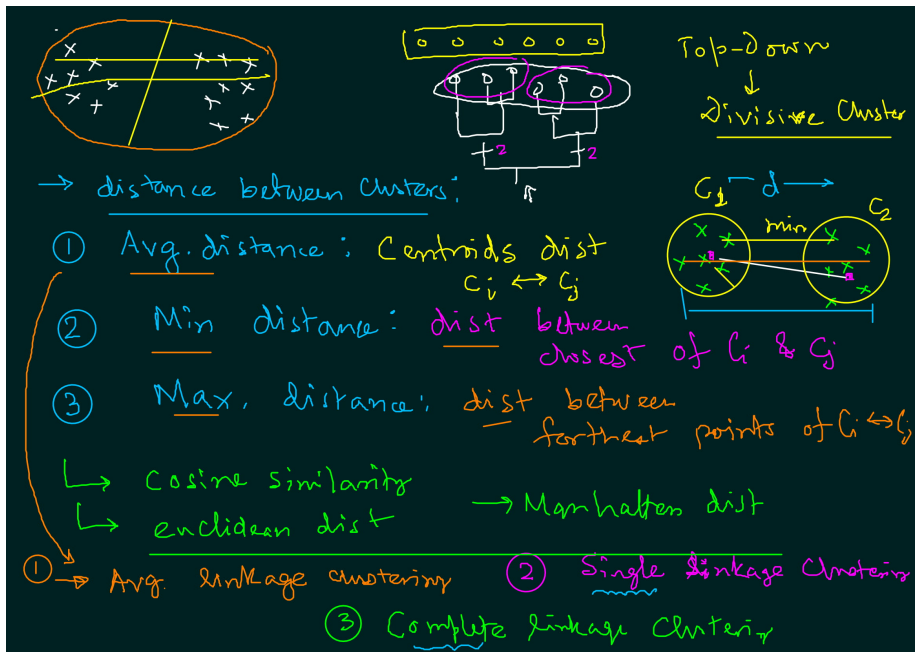 Top-Down
Divisive Cluster
2 2
→ distance between Clusters:
C1 d → C2
min
① Avg. distance: Centroids dist
Ci ↔ Cj
② Min distance: dist between
closest of Ci & Cj
③ Max. distance: dist between
forthest points of Ci ↔ Cj
↳ Cosine similarity
↳ euclidean dist → Manhatten dist
① → Avg. linkage clustering ② Single linkage Clustering
③ Complete linkage Clustering